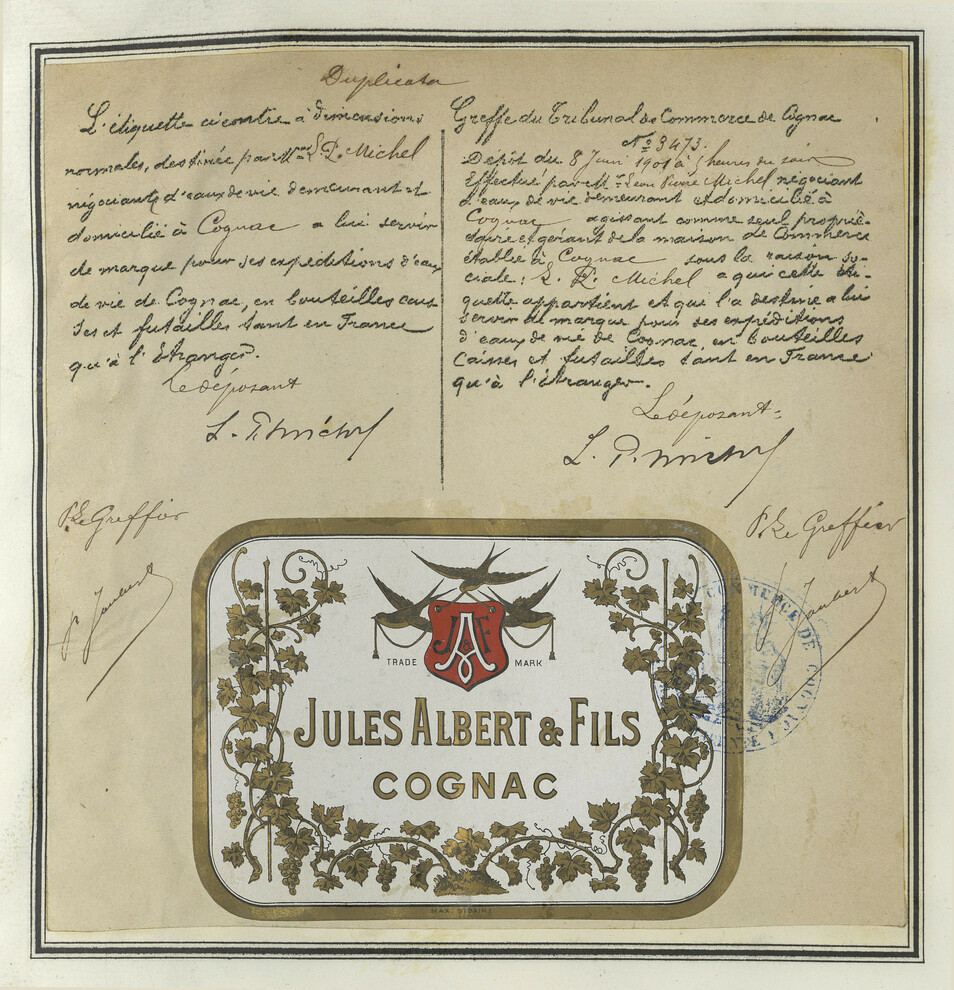 Duplicata
L'étiquette ci contre à dimensions
normales, destinée par Mr L. P. Michel
négociant d'eaux de vie demeurant et
domicilié à Cognac a lui servir
de marque pour ses expéditions d'eaux
de vie de Cognac, en bouteilles cais
ses et futailles tant en France
qu'à l'étranger.
Le déposant
L. P. Michel
Pr Le Greffier
Jaubert
Greffe du Tribunal de Commerce de Cognac
No 3473.
Dépôt du 8 Juin 1901 à 5 heures du soir
Effectué par Mr Léon Pierre Michel négociant
d'eaux de vie demeurant et domicilié à
Cognac agissant comme seul proprié-
taire et gérant de la maison de Commerce
établie à Cognac sous la raison so-
ciale: L. P. Michel a qui cette éti-
quette appartient et qui l'a destine a lui
servir de marque pour ses expéditions
d'eaux de vie de Cognac, en bouteilles
Caisses et futailles tant en France
qu'à l'étranger.
Le déposant
L. P. Michel
Pr Le Greffier
Jaubert
COMMERCE DE COGNAC
J A & F
TRADE MARK
JULES ALBERT & FILS
COGNAC